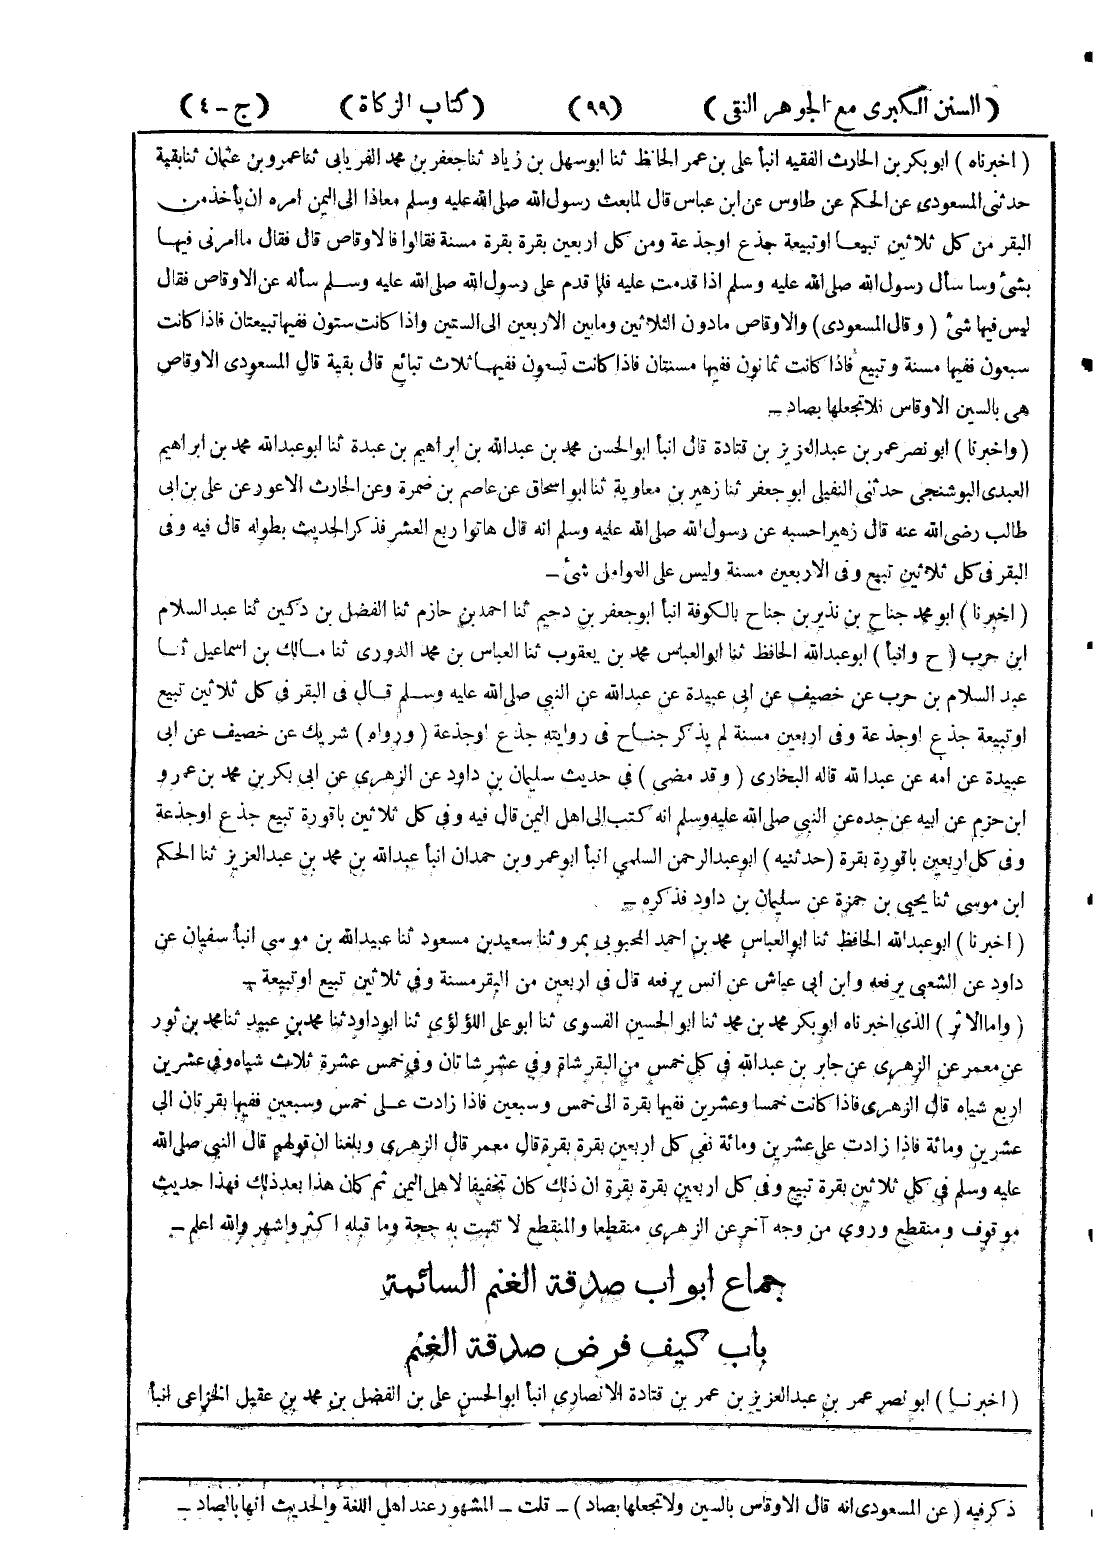 ( السنن الكبرى مع الجوهر النقى ) (٩٩) ( كتاب الزكاة ) ( ج - ٤ )
( اخبرناه ) ابو بكر بن الحارث الفقيه انبأ على بن عمر الحافظ ثنا ابو سهل بن زياد ثنا جعفر بن محمد الفريابى ثنا عمرو بن عثمان ثنا بقية
حدثنى المسعودى عن الحكم عن طاوس عن ابن عباس قال لما بعث رسول الله صلى الله عليه وسلم معاذا الى اليمن امره ان يأخذ من
البقر من كل ثلاثين تبيعا او تبيعة جذع او جذعة ومن كل اربعين بقرة بقرة مسنة فقالوا فالاوقاص قال فقال ما امرنى فيها
بشئ وسا سأل رسول الله صلى الله عليه وسلم اذا قدمت عليه فلما قدم على رسول الله صلى الله عليه وسلم سأله عن الاوقاص فقال
ليس فيها شئ ( وقال المسعودى ) والاوقاص مادون الثلاثين وما بين الاربعين الى الستين واذا كانت ستون ففيها تبيعتان فاذا كانت
سبعون ففيها مسنة وتبيع فاذا كانت ثمانون ففيها مسنتان فاذا كانت تسعون ففيها ثلاث تبائع قال بقية قال المسعودى الاوقاص
هى بالسين الاوقاس فلا تجعلها بصاد -
( واخبرنا ) ابو نصر عمر بن عبد العزيز بن قتادة قال انبأ ابو الحسن محمد بن عبد الله بن ابراهيم بن عبدة ثنا ابو عبد الله محمد بن ابراهيم
العبدى البوشنجى حدثنى النفيلى ابو جعفر ثنا زهير بن معاوية ثنا ابو اسحاق عن عاصم بن ضمرة وعن الحارث الاعور عن على بن ابى
طالب رضى الله عنه قال زهير احسبه عن رسول الله صلى الله عليه وسلم انه قال هاتوا ربع العشر فذكر الحديث بطوله قال فيه وفى
البقر فى كل ثلاثين تبيع وفى الاربعين مسنة وليس على العوامل شئ -
( اخبرنا ) ابو محمد جناح بن نذير بن جناح بالكوفة انبأ ابو جعفر بن دحيم ثنا احمد بن حازم ثنا الفضل بن دكين ثنا عبد السلام
ابن حرب ( ح وانبأ ) ابو عبد الله الحافظ ثنا ابو العباس محمد بن يعقوب ثنا العباس بن محمد الدورى ثنا مالك بن اسماعيل ثنا
عبد السلام بن حرب عن خصيف عن ابى عبيدة عن عبد الله عن النبى صلى الله عليه وسلم قال فى البقر فى كل ثلاثين تبيع
او تبيعة جذع او جذعة وفى اربعين مسنة لم يذكر جناح فى روايته جذع او جذعة ( ورواه ) شريك عن خصيف عن ابى
عبيدة عن امه عن عبد الله قاله البخارى ( وقد مضى ) فى حديث سليمان بن داود عن الزهرى عن ابى بكر بن محمد بن عمرو
ابن حزم عن ابيه عن جده عن النبى صلى الله عليه وسلم انه كتب الى اهل اليمن قال فيه وفى كل ثلاثين باقورة تبيع جذع او جذعة
وفى كل اربعين باقورة بقرة ( حدثنيه ) ابو عبد الرحمن السلمى انبأ ابو عمرو بن حمدان انبأ عبد الله بن محمد بن عبد العزيز ثنا الحكم
ابن موسى ثنا يحيى بن حمزة عن سليمان بن داود فذكره -
( اخبرنا ) ابو عبد الله الحافظ ثنا ابو العباس محمد بن احمد المحبوبى بمرو ثنا سعيد بن مسعود ثنا عبيد الله بن موسى انبأ سفيان عن
داود عن الشعبى يرفعه وابن ابى عياش عن انس يرفعه قال فى اربعين من البقر مسنة وفى ثلاثين تبيع او تبيعة -
( واما الاثر ) الذى اخبرناه ابو بكر محمد بن محمد ثنا ابو الحسين الفسوى ثنا ابو على اللؤلؤى ثنا ابو داود ثنا محمد بن عبيد ثنا محمد بن ثور
عن معمر عن الزهرى عن جابر بن عبد الله فى كل خمس من البقر شاة وفى عشر شاتان وفى خمس عشرة ثلاث شياه وفى عشرين
اربع شياه قال الزهرى فاذا كانت خمسا وعشرين ففيها بقرة الى خمس وسبعين فاذا زادت على خمس وسبعين ففيها بقرتان الى
عشرين ومائة فاذا زادت على عشرين ومائة ففى كل اربعين بقرة بقرة قال معمر قال الزهرى وبلغنا ان قولهم قال النبى صلى الله
عليه وسلم فى كل ثلاثين بقرة تبيع وفى كل اربعين بقرة بقرة ان ذلك كان تخفيفا لاهل اليمن ثم كان هذا بعد ذلك فهذا حديث
موقوف ومنقطع وروى من وجه آخر عن الزهرى منقطعا والمنقطع لا تثبت به حجة وما قبله اكثر واشهر والله اعلم -
جماع ابواب صدقة الغنم السائمة
باب كيف فرض صدقة الغنم
( اخبرنا ) ابو نصر عمر بن عبد العزيز بن عمر بن قتادة الانصارى انبأ ابو الحسن على بن الفضل بن محمد بن عقيل الخزاعى انبأ
ذكر فيه ( عن المسعودى انه قال الاوقاس بالسين ولا تجعلها بصاد ) - قلت - المشهور عند اهل اللغة والحديث انها بالصاد -